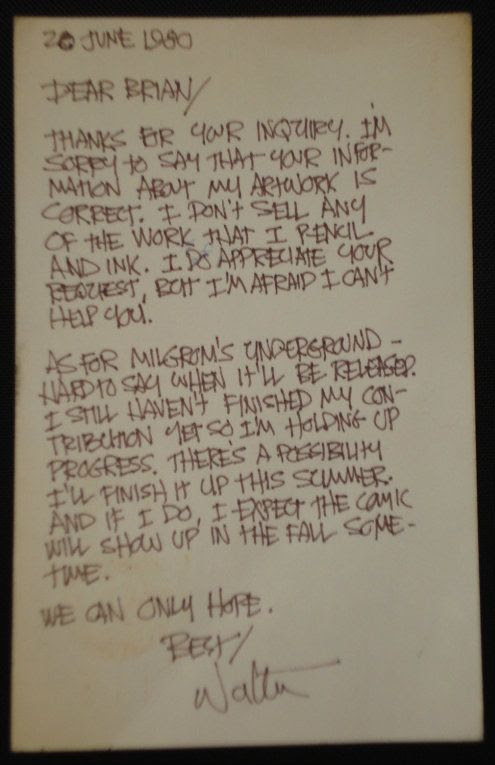 20 JUNE 1980
DEAR BRIAN/
THANKS FOR YOUR INQUIRY. I'M
SORRY TO SAY THAT YOUR INFOR-
MATION ABOUT MY ARTWORK IS
CORRECT. I DON'T SELL ANY
OF THE WORK THAT I PENCIL
AND INK. I DO APPRECIATE YOUR
REQUEST, BUT I'M AFRAID I CAN'T
HELP YOU.
AS FOR MILGROM'S UNDERGROUND -
HARD TO SAY WHEN IT'LL BE RELEASED.
I STILL HAVEN'T FINISHED MY CON-
TRIBUTION YET SO I'M HOLDING UP
PROGRESS. THERE'S A POSSIBILITY
I'LL FINISH IT UP THIS SUMMER.
AND IF I DO, I EXPECT THE COMIC
WILL SHOW UP IN THE FALL SOME-
TIME.
WE CAN ONLY HOPE.
BEST/
Walter